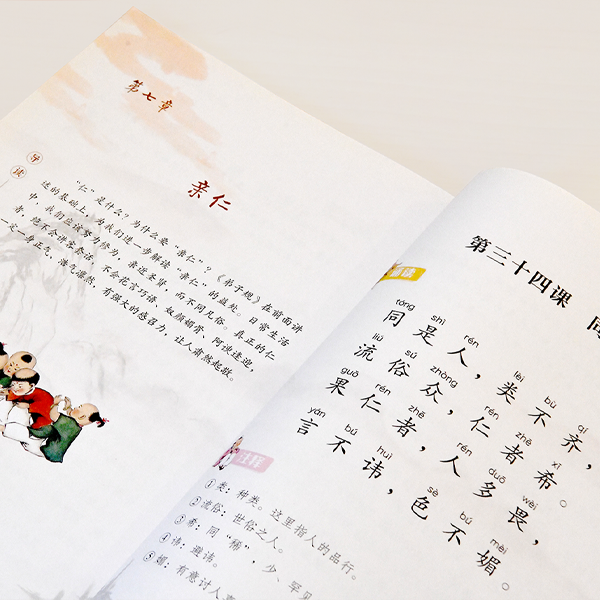 第七章
亲仁
导读
“仁”是什么?为什么要“亲仁”?《弟子规》在前面讲
述的基础上,为我们进一步解读“亲仁”的益处。日常生活
中,我们应该努力修为,亲近圣贤,而不同凡俗。真正的仁
者,绝不会讲客套话,不会花言巧语、奴颜媚骨、阿谀逢迎,
一定一身正气、浩气凛然,有强大的感召力,让人肃然起敬。
第三十四课 同
诵读
tóng shì rén lèi bù qí
同是人,类不齐,
liú sú zhòng rén zhě xī
流俗众,仁者希。
guǒ rén zhě rén duō wèi
果仁者,人多畏,
yán bú huì sè bú mèi
言不讳,色不媚。
注释
①类:种类。这里指人的品行。
②流俗:世俗之人。
③希:同“稀”,少、罕见
④讳:避讳。
⑤媚:有意讨人